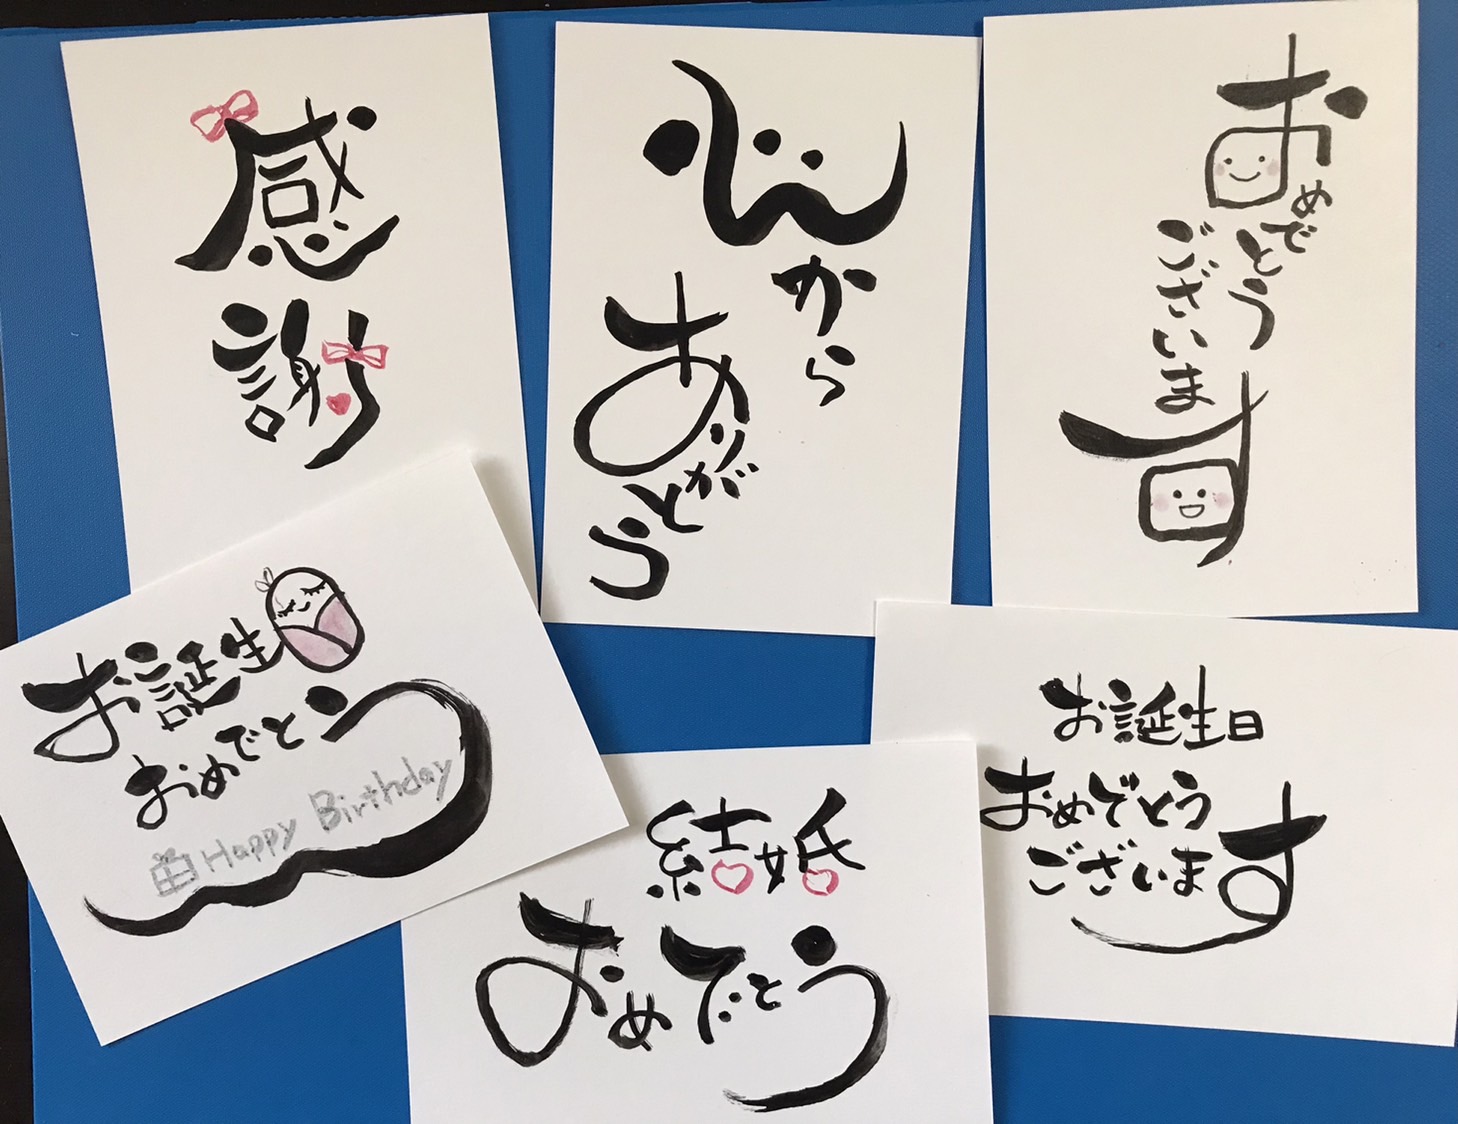 感謝
心から
ありがとう
おめでとう
ございます
お誕生
おめでとう
Happy Birthday
結婚
おめでとう
お誕生日
おめでとう
ございます